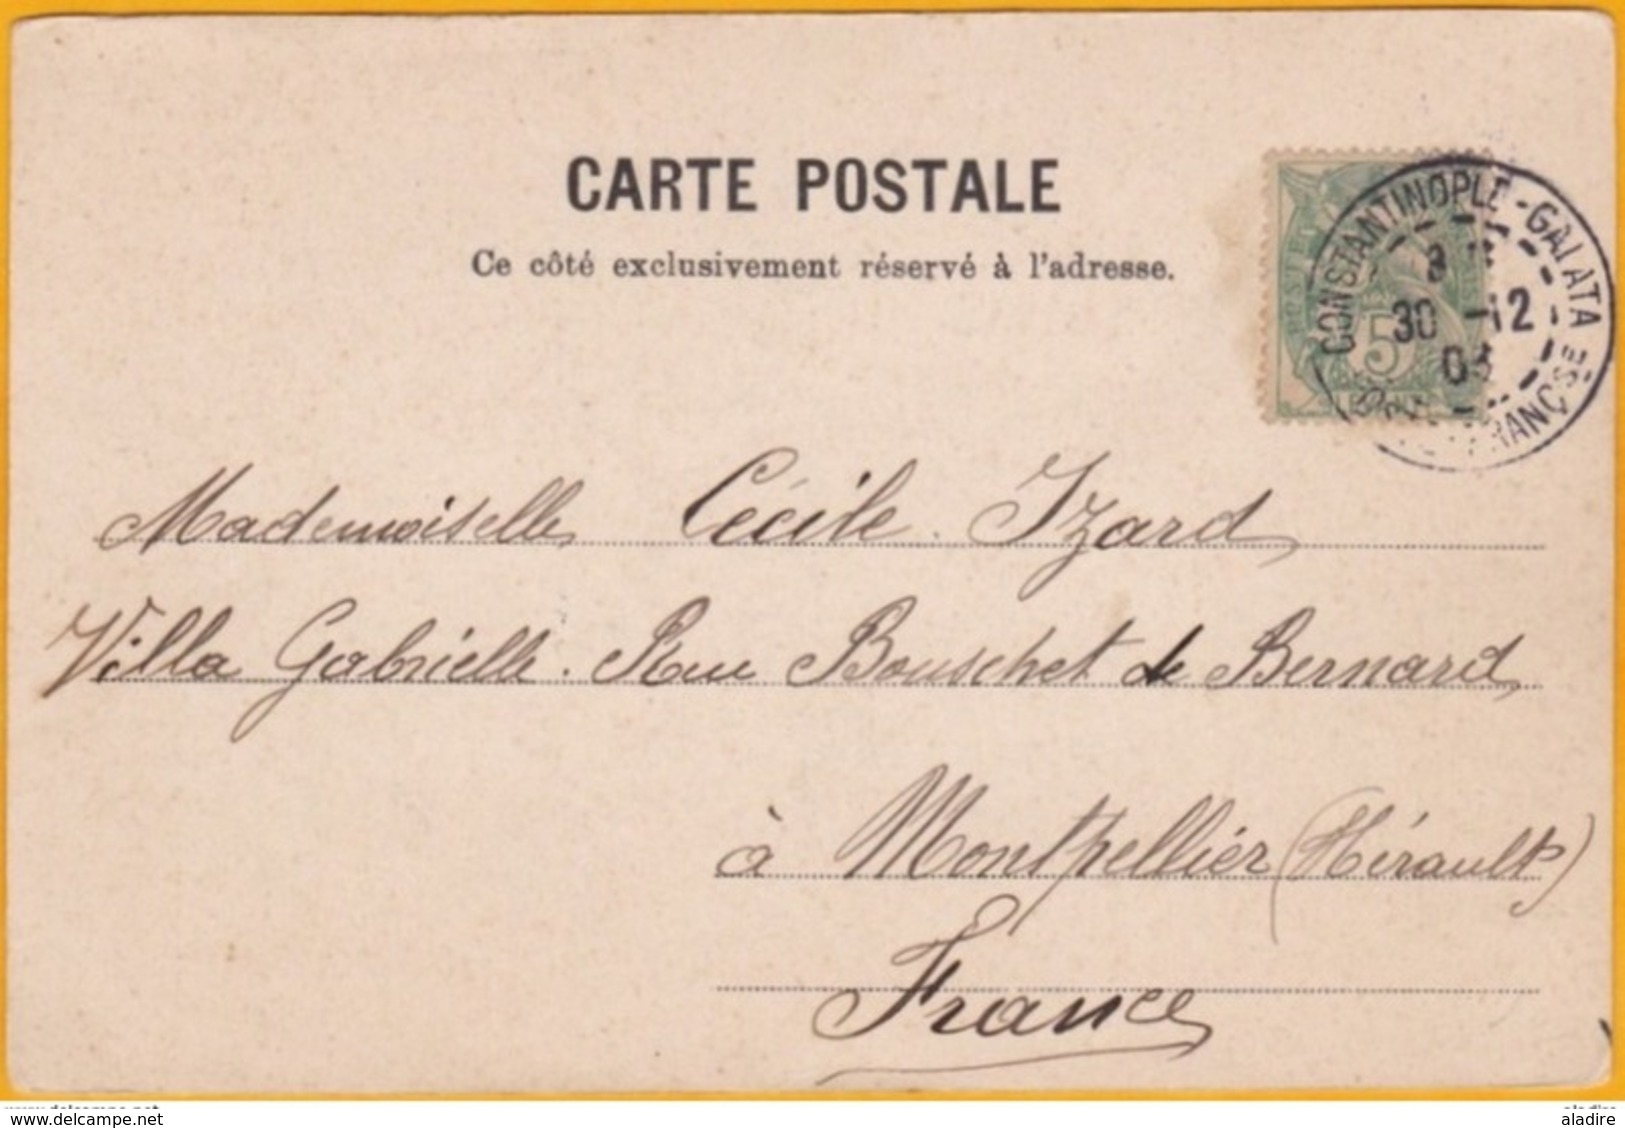 CARTE POSTALE
Ce côté exclusivement réservé à l'adresse.
CONSTANTINOPLE-GALATA
30 -12
03
5
Mademoiselle Cécile Izard
Villa Gabrielle. Rue Bouschet de Bernard
à Montpellier (Hérault)
France
www.delcampe.net
aladire